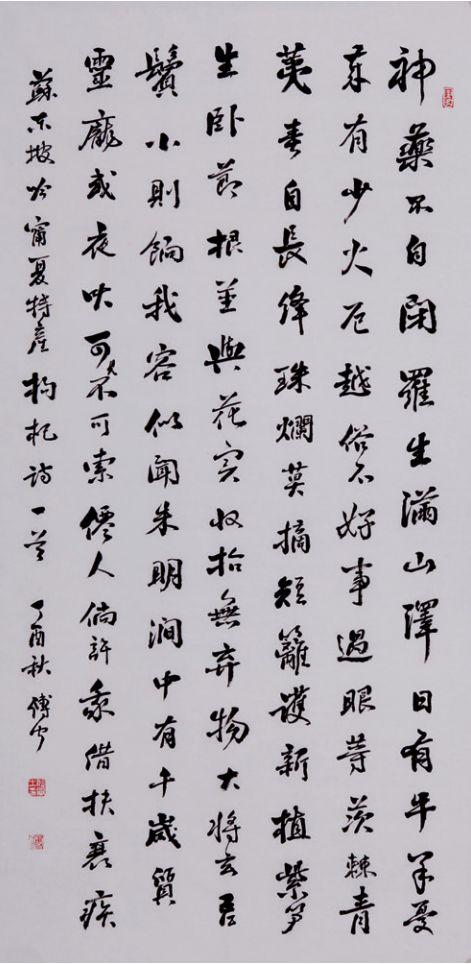 神藥不自閉羅生滿山澤日有牛羊憂
有少火厄越俗不好事過眼等茨棘青
荑春自長絳珠爛莫摘短籬護新植紫笋
生臥節根莖與花实收拾無弃物大將玄吾
鬢小則餉我容似聞朱明澗中有千歲質
靈龐或夜吠可不可索僊人倘許我借扶衰疾
蘇东坡吟甯夏特產枸杞詩一首 丁酉秋 傅